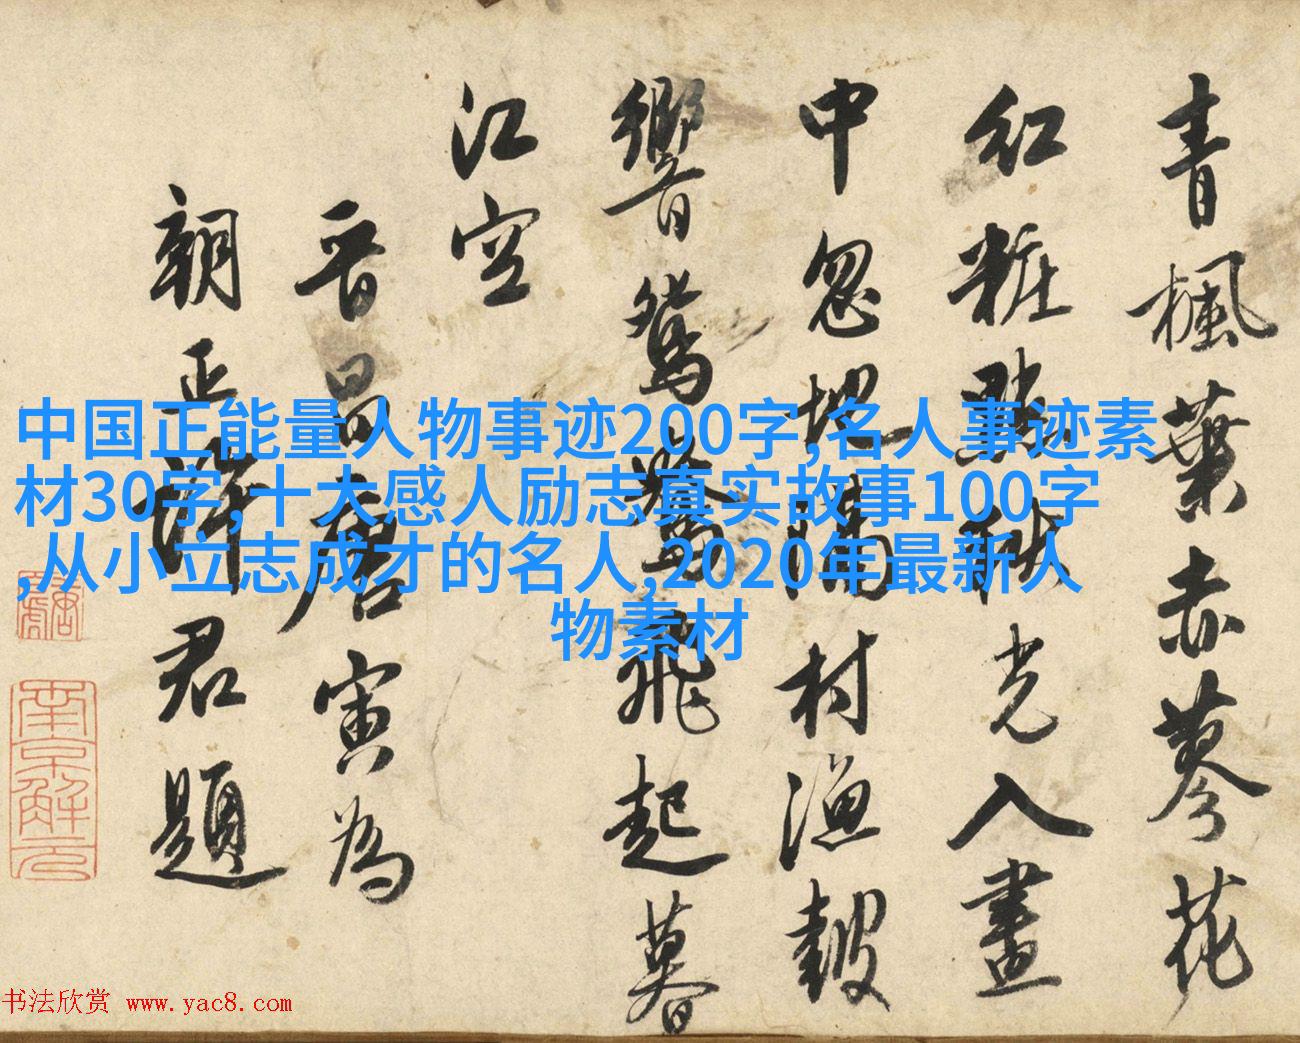 青楓葉赤蓼花
紅粧點秋光入畫
中忽地隔村漁鼓
響鴛鴦飛起暮
江空
晉昌唐寅為
朝正君題
南京解元
中国正能量人物事迹200字,名人事迹素
材30字,十大感人励志真实故事100字
,从小立志成才的名人,2020年最新人
物素材
书法欣赏 www.yac8.com